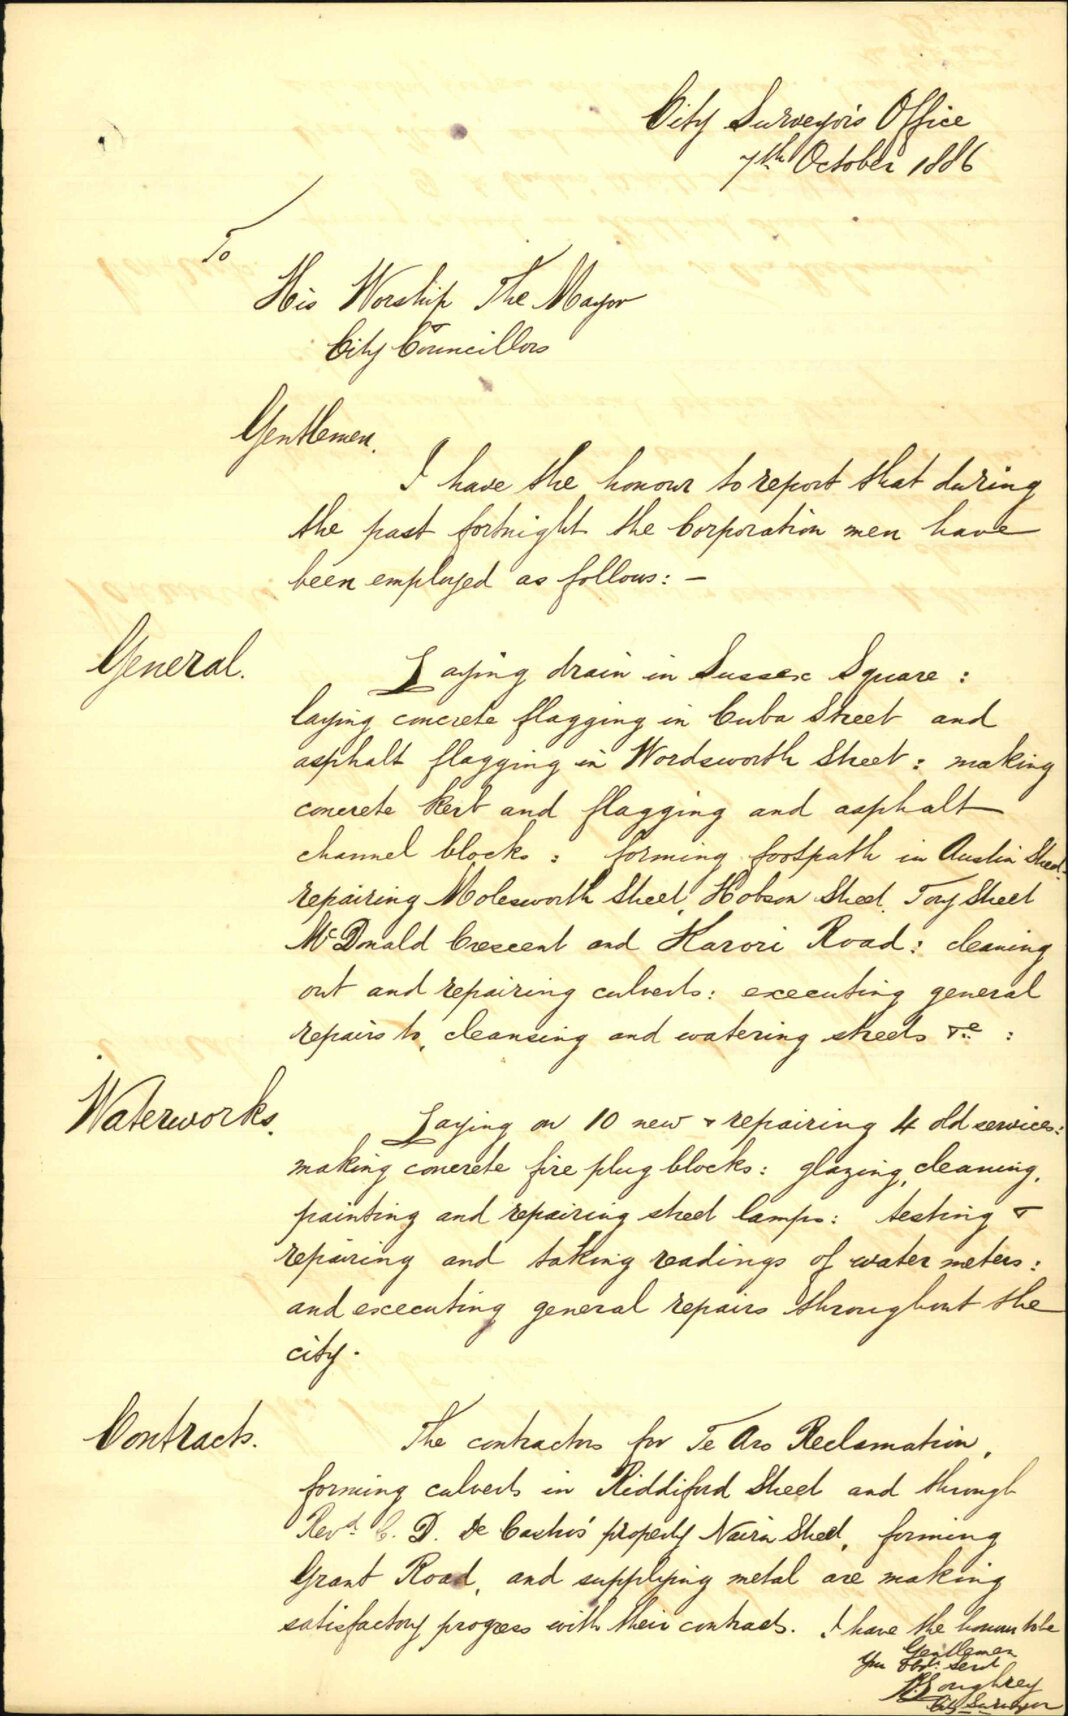 City Surveyor's Office
7th October 1886
To
His Worship The Mayor
&
City Councillors
Gentlemen,
I have the honour to report that during
the past fortnight the Corporation men have
been employed as follows: -
General. Laying drain in Sussex Square :
laying concrete flagging in Cuba Street and
asphalt flagging in Wordsworth Street : making
concrete kerb and flagging and asphalt
channel blocks : forming footpath in Austin Street :
repairing Molesworth Street, Hobson Street, Tory Street
McDonald Crescent and Karori Road : cleaning
out and repairing culverts : executing general
repairs to, cleansing and watering streets &c :
Waterworks. Laying on 10 new & repairing 4 old services :
making concrete fire plug blocks : glazing, cleaning,
painting and repairing street lamps : testing &
repairing and taking readings of water meters :
and executing general repairs throughout the
city.
Contracts. The contractors for Te Aro Reclamation,
forming culverts in Riddiford Street and through
Revd. C. D. De Castro's property Nairn Street, forming
Grant Road, and supplying metal are making
satisfactory progress with their contracts. I have the honour to be
Gentlemen
You obdt. servt
Loughrey
City Surveyor